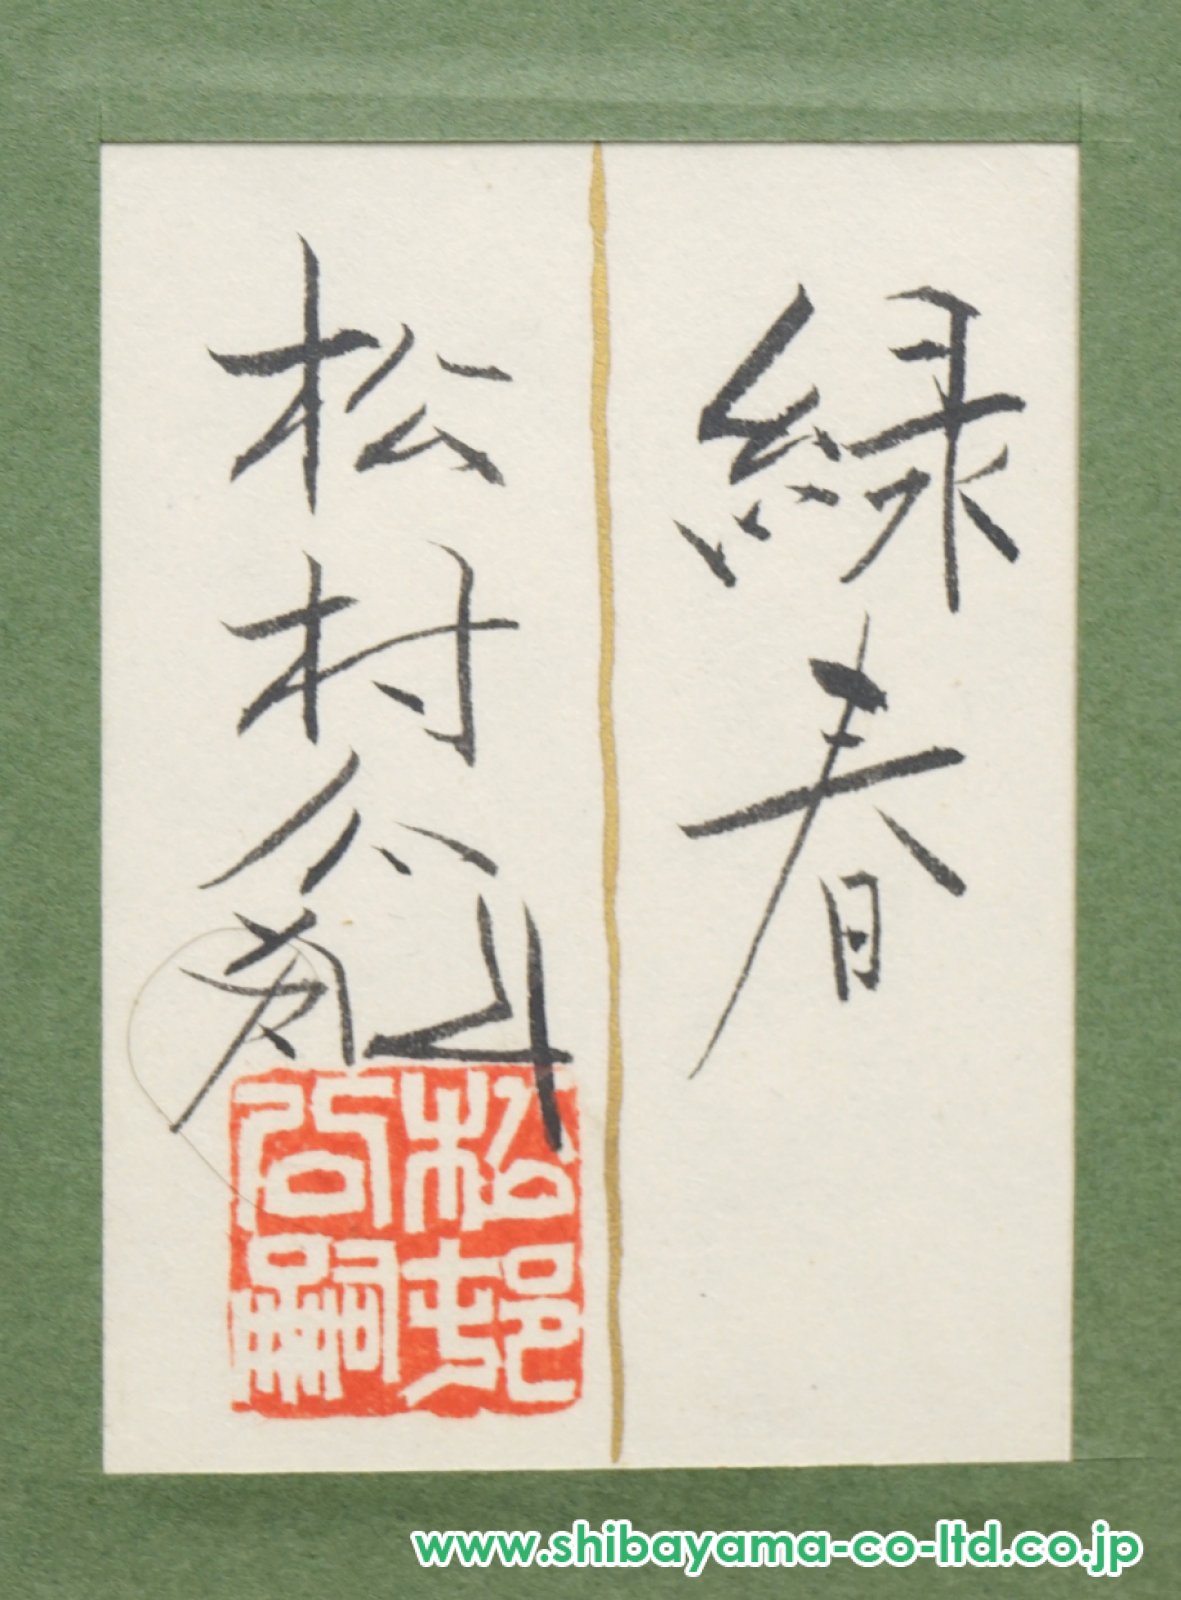 緑春
松村公嗣
松邨
公嗣
www.shibayama-co-ltd.co.jp